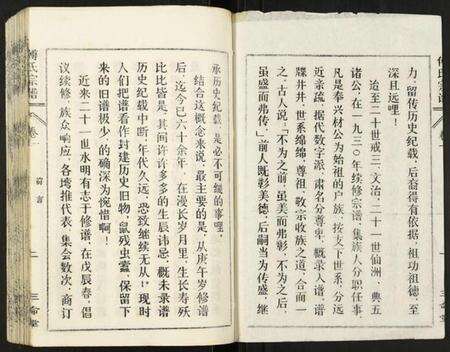 力、留传历史纪载，后裔得有依据，祖功祖德，至
深且远哩！
迨至二十世戒三、文治、二十一世仙洲、典五
诸公，在一九三〇年续修宗谱，集族人分职任事
凡是奉兴材公为始祖的户族，按支下世系，分远
近亲疏，据代数字派，肃名分尊卑，概录入谱，谱
牒井井，世系绵绵，尊祖，敬宗收族之道，合而一
之。古人说：「不为之前，虽美而弗彰，不为之后，
虽盛而弗传。」前人既彰美德，后嗣当为传盛，继
承历史纪载，是必不可缓的事哩。
结合这概念来说，最主要的是，从庚午岁修谱
后，迄今已六十余年，在漫长岁月里，生长寿殀
比比皆是，其间许许多多的生辰讳忌，概未录谱
历史纪载中断，年代久远，恐致继续无从！现时
人们把谱看作封建历史旧物，鼠残虫蠹，保留下
来的旧谱极少，的确深为惋惜啊！
近来二十一世水明有志于修谱，在戊辰春，倡
议续修，族众响应，各塆推代表，集会数次，商订
傅氏宗谱
卷一
前言
二
三命堂